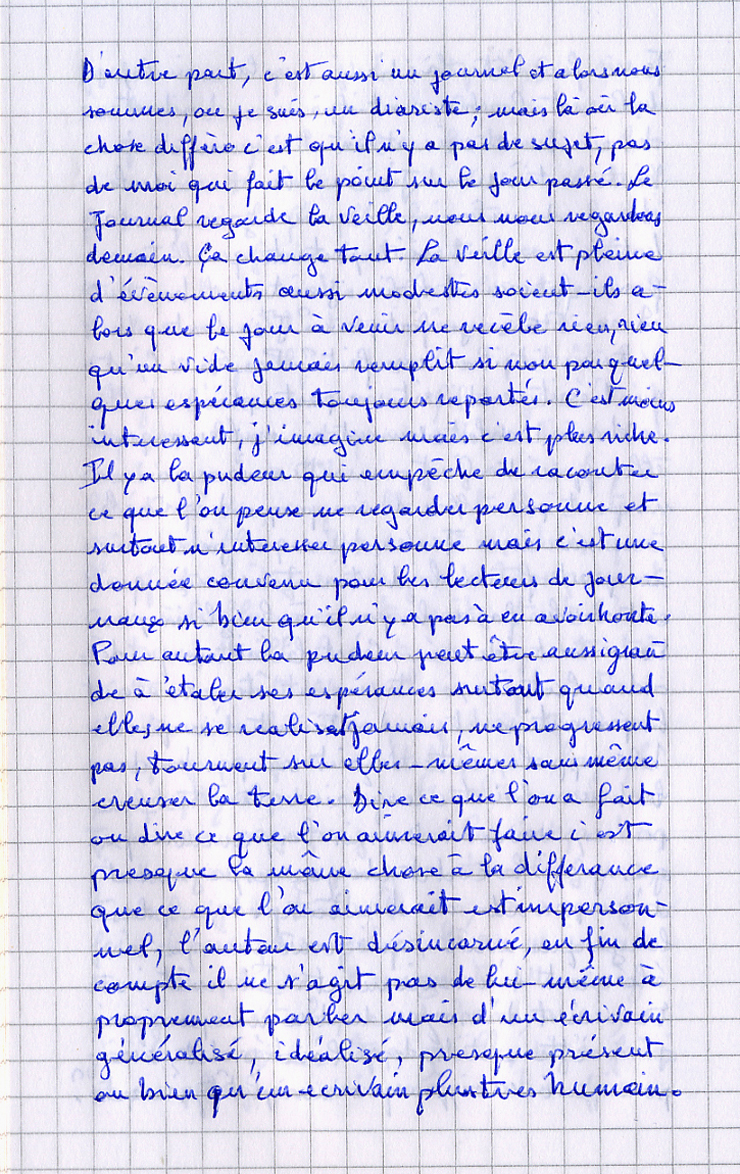 D'autre part, c'est aussi un journal et alors nous
sommes, ou je suis, un diariste ; mais là où la
chose diffère c'est qu'il n'y a pas de sujet, pas
de moi qui fait le point sur le jour passé. Le
Journal regarde la veille, nous nous regardons
demain. Ça change tout. La veille est pleine
d'évènements aussi modestes soient-ils a-
lors que le jour à venir ne recèle rien, rien
qu'un vide jamais remplit si non par quel-
ques espérances toujours reportés. C'est moins
interessant, j'imagine mais c'est plus riche.
Il y a la pudeur qui empêche de raconter
ce que l'on pense ne regarder personne et
surtout n'interesser personne mais c'est une
donnée convenu pour les lecteurs de jour-
naux si bien qu'il n'y a pas à en avoir honte.
Pour autant la pudeur peut être aussi gran
de à étaler ses espérances surtout quand
elles ne se realisent jamais, ne progressent
pas, tournent sur elles-mêmes sans même
creuser la terre. Dire ce que l'on a fait
ou dire ce que l'on aimerait faire c'est
presque la même chose à la differance
que ce que l'on aimerait est imperson-
nel, l'auteur est désincarné, en fin de
compte il ne s'agit pas de lui-même à
proprement parler mais d'un écrivain
généralisé, idéalisé, presque présent
ou bien qu'un ecrivain plus très humain.